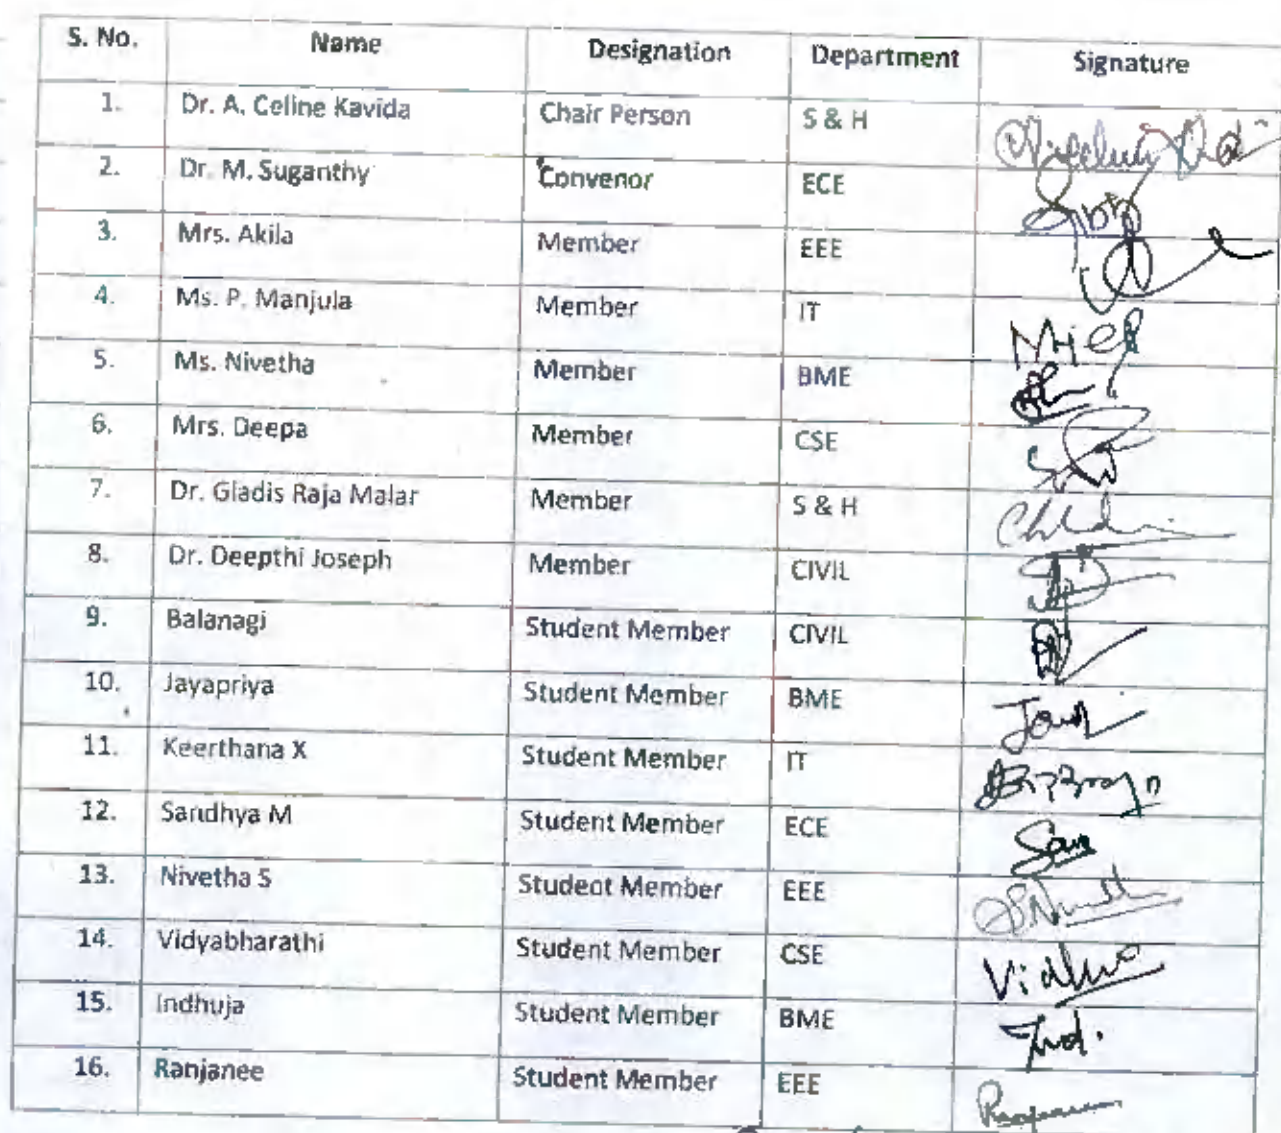 S. No. Name Designation Department Signature
1. Dr. A. Celine Kavida Chair Person S & H
2. Dr. M. Suganthy Convenor ECE
3. Mrs. Akila Member EEE
4. Ms. P. Manjula Member IT
5. Ms. Nivetha Member BME
6. Mrs. Deepa Member CSE
7. Dr. Gladis Raja Malar Member S & H
8. Dr. Deepthi Joseph Member CIVIL
9. Balanagi Student Member CIVIL
10. Jayapriya Student Member BME
11. Keerthana X Student Member IT
12. Sandhya M Student Member ECE
13. Nivetha S Student Member EEE
14. Vidyabharathi Student Member CSE
15. Indhuja Student Member BME
16. Ranjanee Student Member EEE